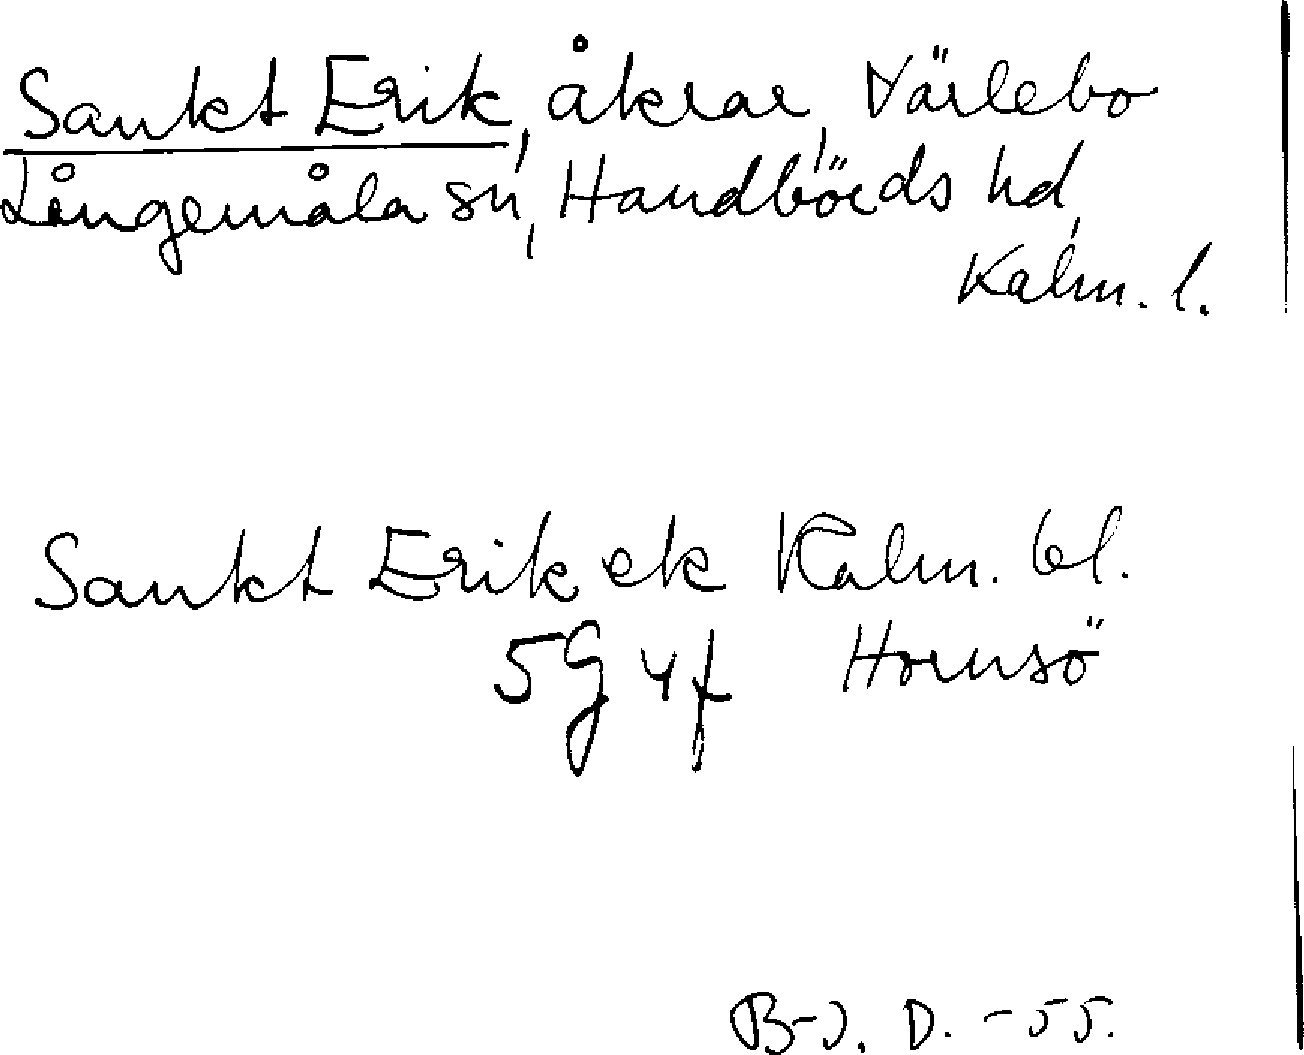 Sankt Erik, åkrar, Värlebo
Långemåla sn, Handbörds hd,
Kalm. l.
Sankt Erik ek Kalm. bl.
5G 4f Hornsö
B-J. D. -55.